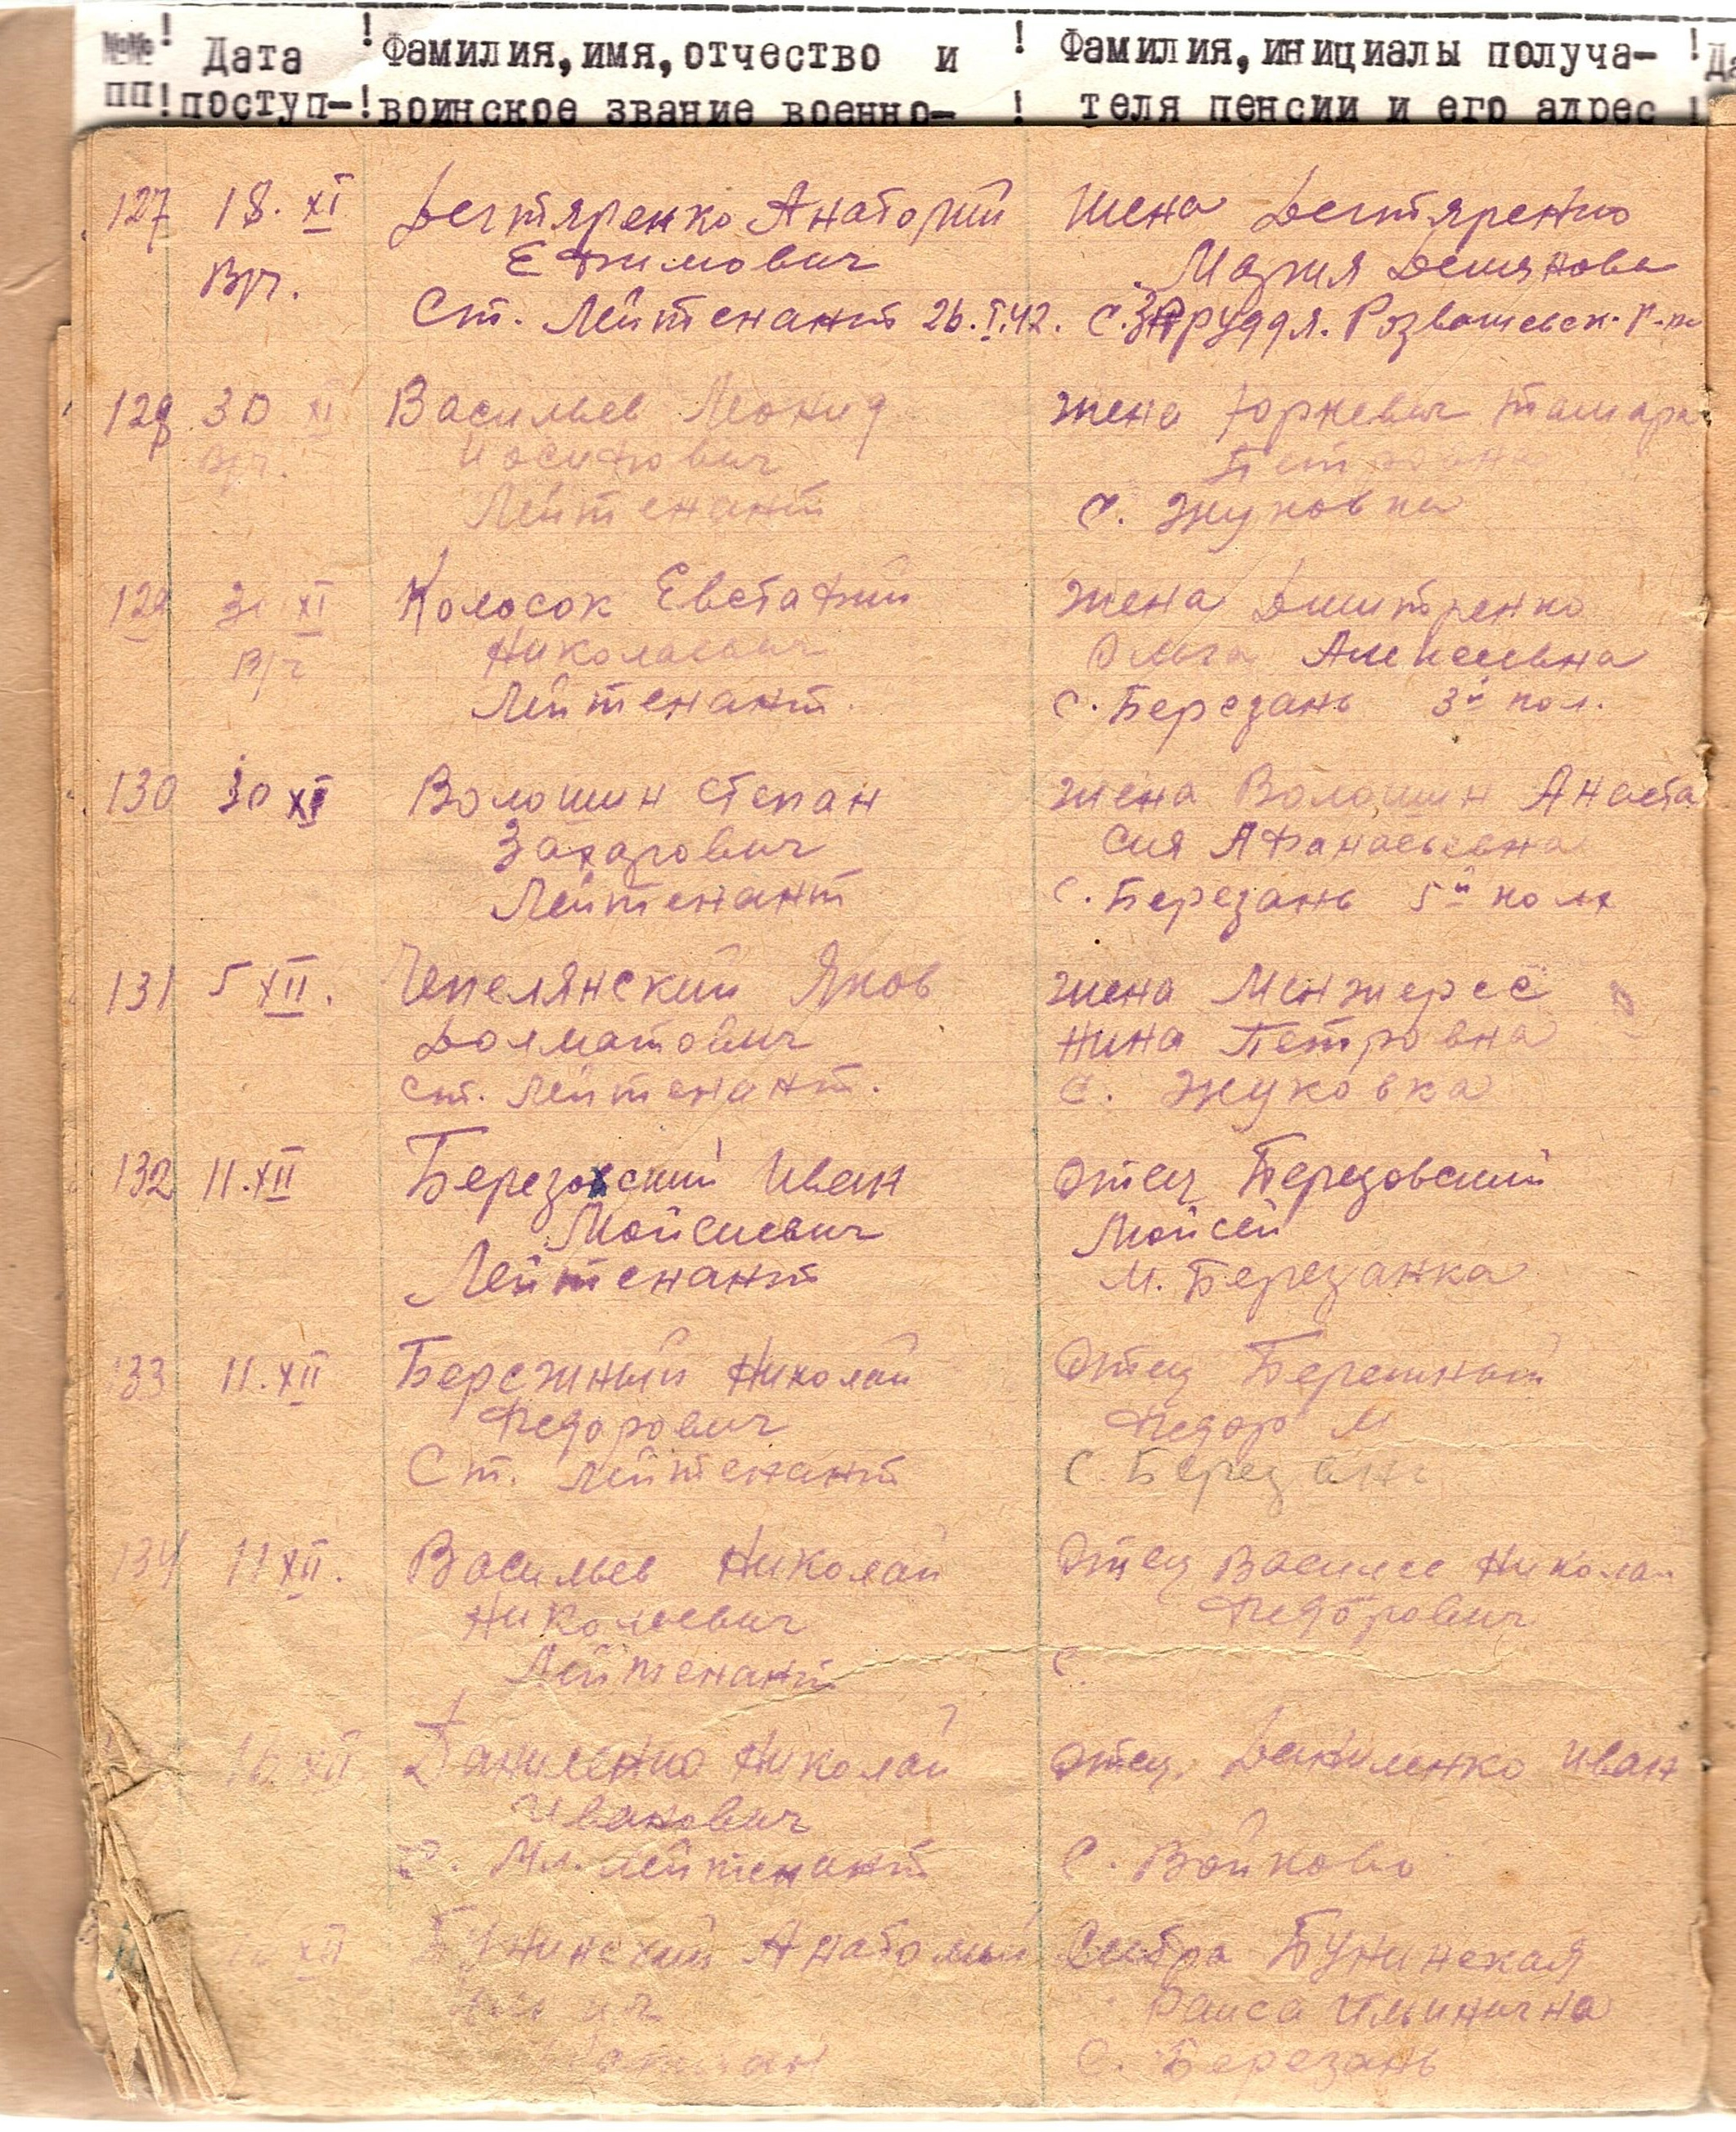 №№ ! Дата ! Фамилия, имя, отчество и ! Фамилия, инициалы получа- !
ПП ! поступ- ! воинское звание военно- ! теля пенсии и его адрес !
127 18. XI Дегтяренко Анатолий Жена Дегтяренко
Вр. Ефимович Мария Демянова
Ст. Лейтенант 26.I.42. с. Розважевск. р-н
128 30 XI Васильев Леонид жена Юркевич Тамара
Вр. Иосифович Петровна
Лейтенант с. Жуковка
129 30 XI Колосок Евстафий Жена Дмитренко
Вр Николаевич Ольга Алексеевна
Лейтенант. с. Березань 3й пол.
130 30 XI Волошин Степан жена Волошин Анаста
Захарович сия Афанасьевна
Лейтенант с. Березань 5й поля
131 5 XII. Чепелянский Яков жена Менжерес
Долматович Нина Петровна
ст. Лейтенант. с. Жуковка
132 11.XII Березовский Иван Отец Березовский
Мойсиевич Мойсей
Лейтенант М. Березанка
133 11.XII Бережный Николай Отец Бережный
Федорович Федор М
Ст. Лейтенант с. Березань
134 11 XII. Васильев Николай Отец Николай
Николаевич Федорович
Лейтенант с.
XII Даниленко Николай Отец Даниленко Иван
Иванович
Мл. Лейтенант с. Войково
XII Бунинский Анатолий Сестра Бунинская
Раиса Ильинична
с. Березань